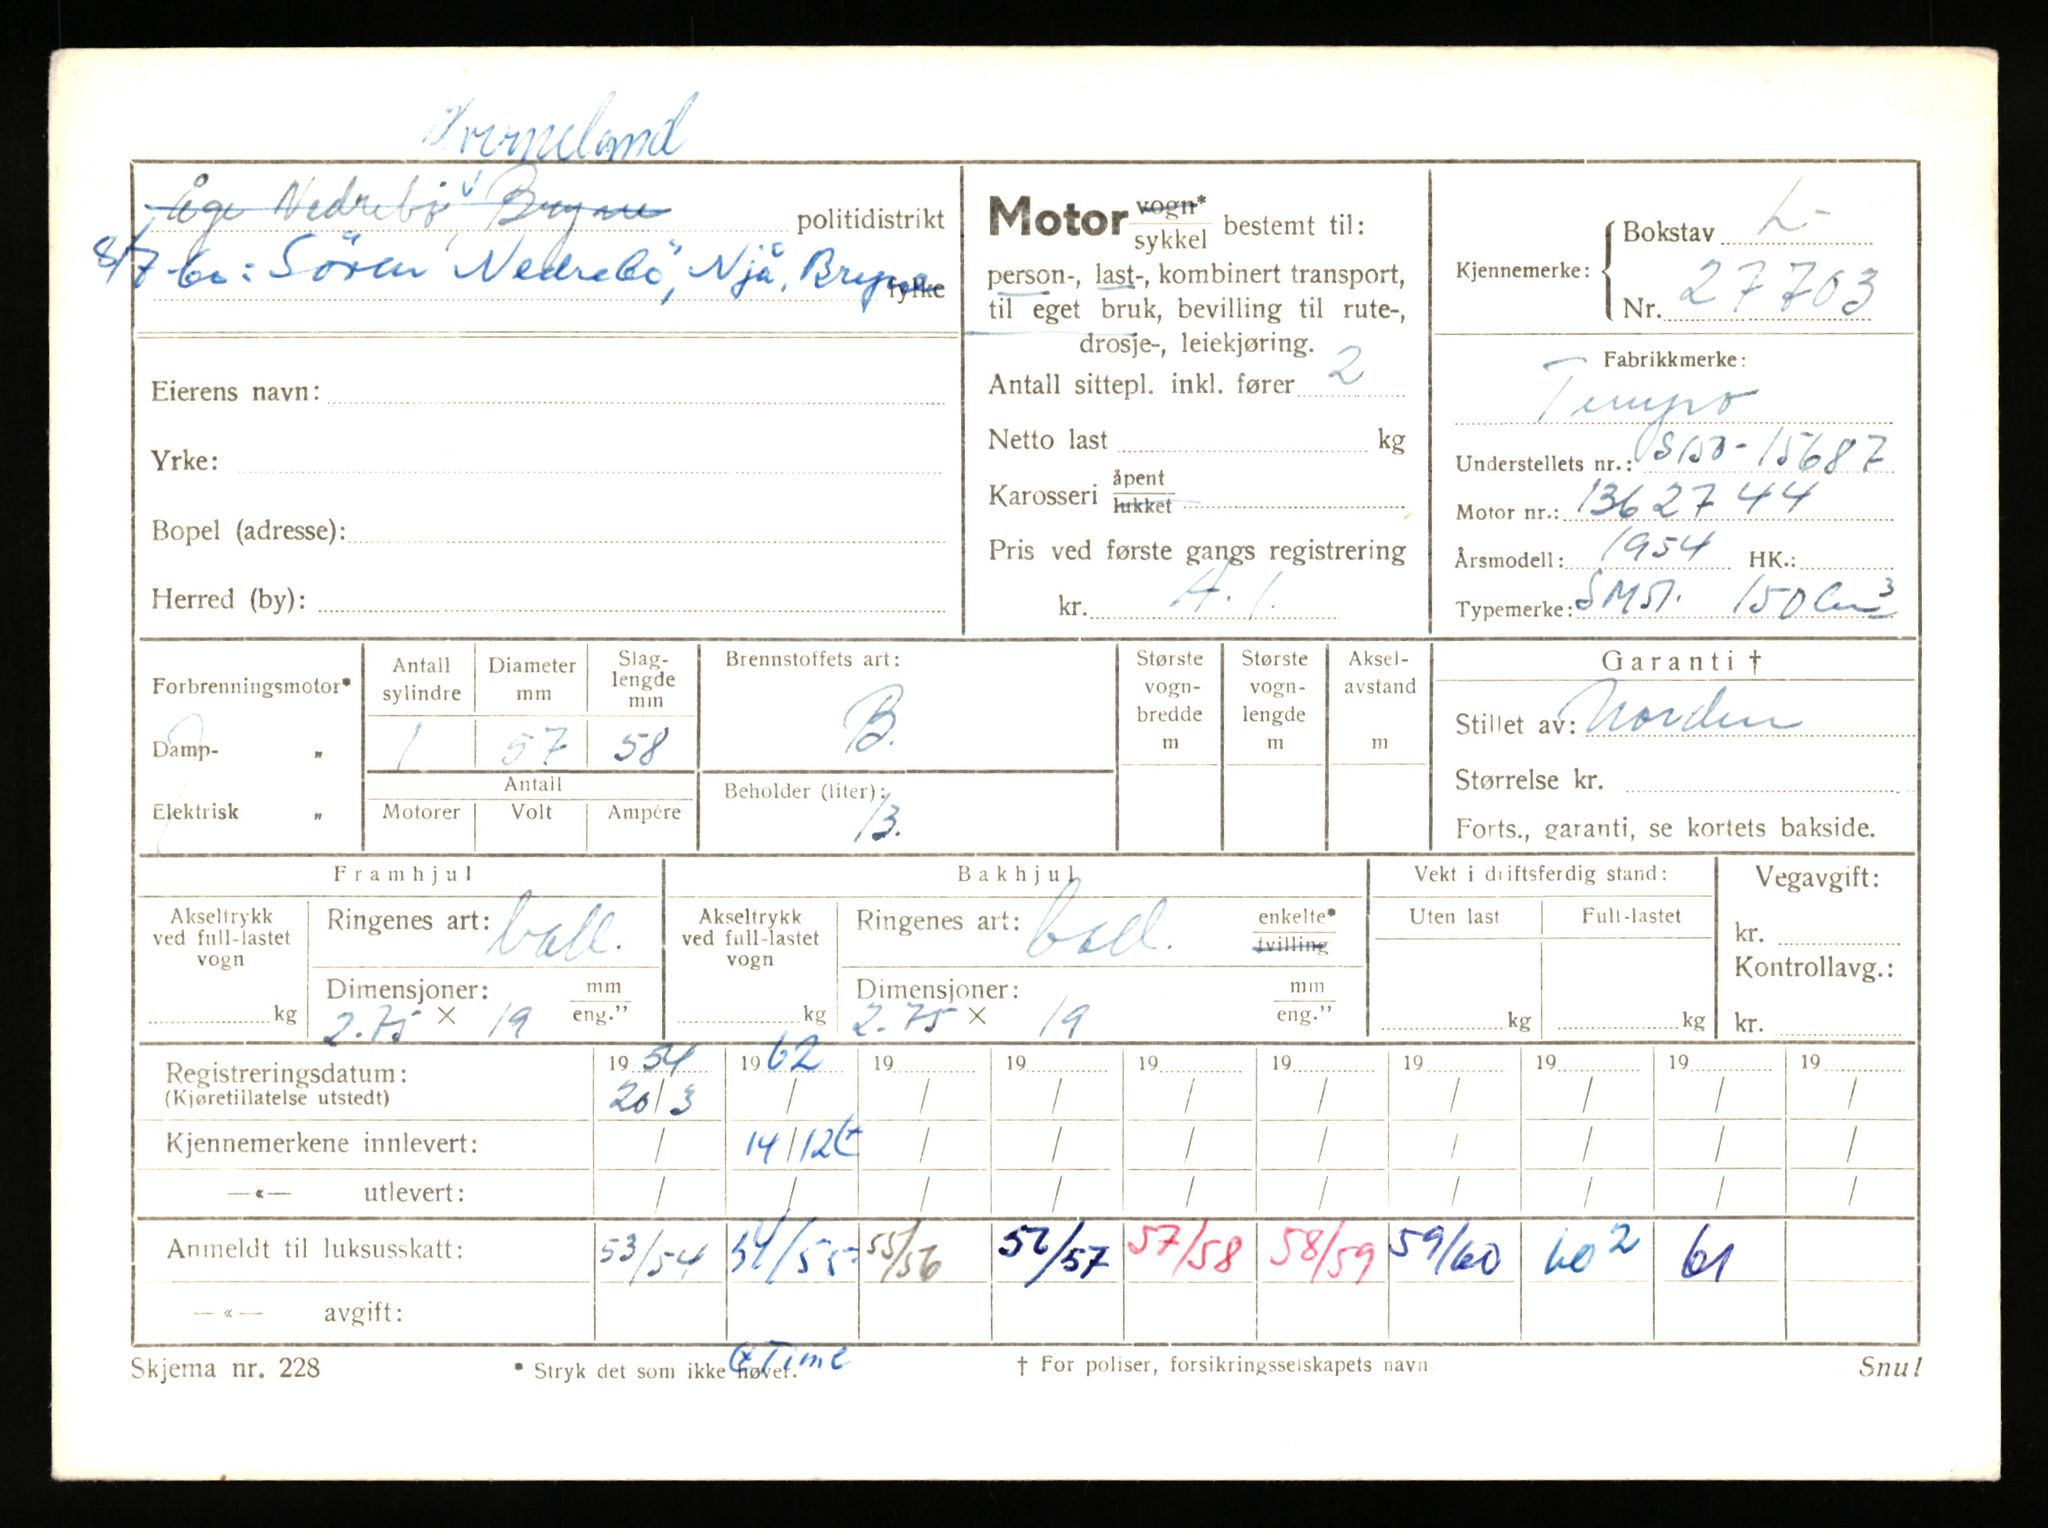 Åge Nedrebø, Bryne politidistrikt
8/7 60: Sören Nedrebö, Njå, Bryne fylke
Eierens navn:
Yrke:
Bopel (adresse):
Herred (by):
Motor vogn* sykkel bestemt til:
person-, last-, kombinert transport,
til eget bruk, bevilling til rute-,
drosje-, leiekjøring.
Antall sittepl. inkl. fører 2
Netto last kg
Karosseri åpent lukket
Pris ved første gangs registrering
kr. A. 1.
Kjennemerke: Bokstav L-
Nr. 27703
Fabrikkmerke:
Tempo
Understellets nr.: 150-15687
Motor nr.: 1362744
Årsmodell: 1954 HK.:
Typemerke: 150 Cm3
Forbrenningsmotor*
Damp- „
Elektrisk „
Antall sylindre 1
Diameter mm 57
Slag-lengde mm 58
Antall
Motorer Volt Ampére
Brennstoffets art:
B.
Beholder (liter):
13.
Største vogn-bredde m
Største vogn-lengde m
Aksel-avstand m
Garanti †
Stillet av: Norden
Størrelse kr.
Forts., garanti, se kortets bakside.
Framhjul
Akseltrykk ved full-lastet vogn
kg
Ringenes art: ball.
Dimensjoner: mm eng.”
2.75 × 19
Bakhjul
Akseltrykk ved full-lastet vogn
kg
Ringenes art: ball. enkelte* tvilling
Dimensjoner: mm eng.”
2.75 × 19
Vekt i driftsferdig stand:
Uten last Full-lastet
kg kg
Vegavgift:
kr.
Kontrollavg.:
kr.
Registreringsdatum: 19 54 19 62 19 19 19 19 19 19 19 19
(Kjøretillatelse utstedt) 20/3 / / / / / / / / /
Kjennemerkene innlevert: / 14/12 / / / / / / / /
—«— utlevert: / / / / / / / / / /
Anmeldt til luksusskatt: 53/54 54/55 55/56 56/57 57/58 58/59 59/60 60 2 61
—«— avgift:
Skjema nr. 228
* Stryk det som ikke høver.
Time
† For poliser, forsikringsselskapets navn
Snul